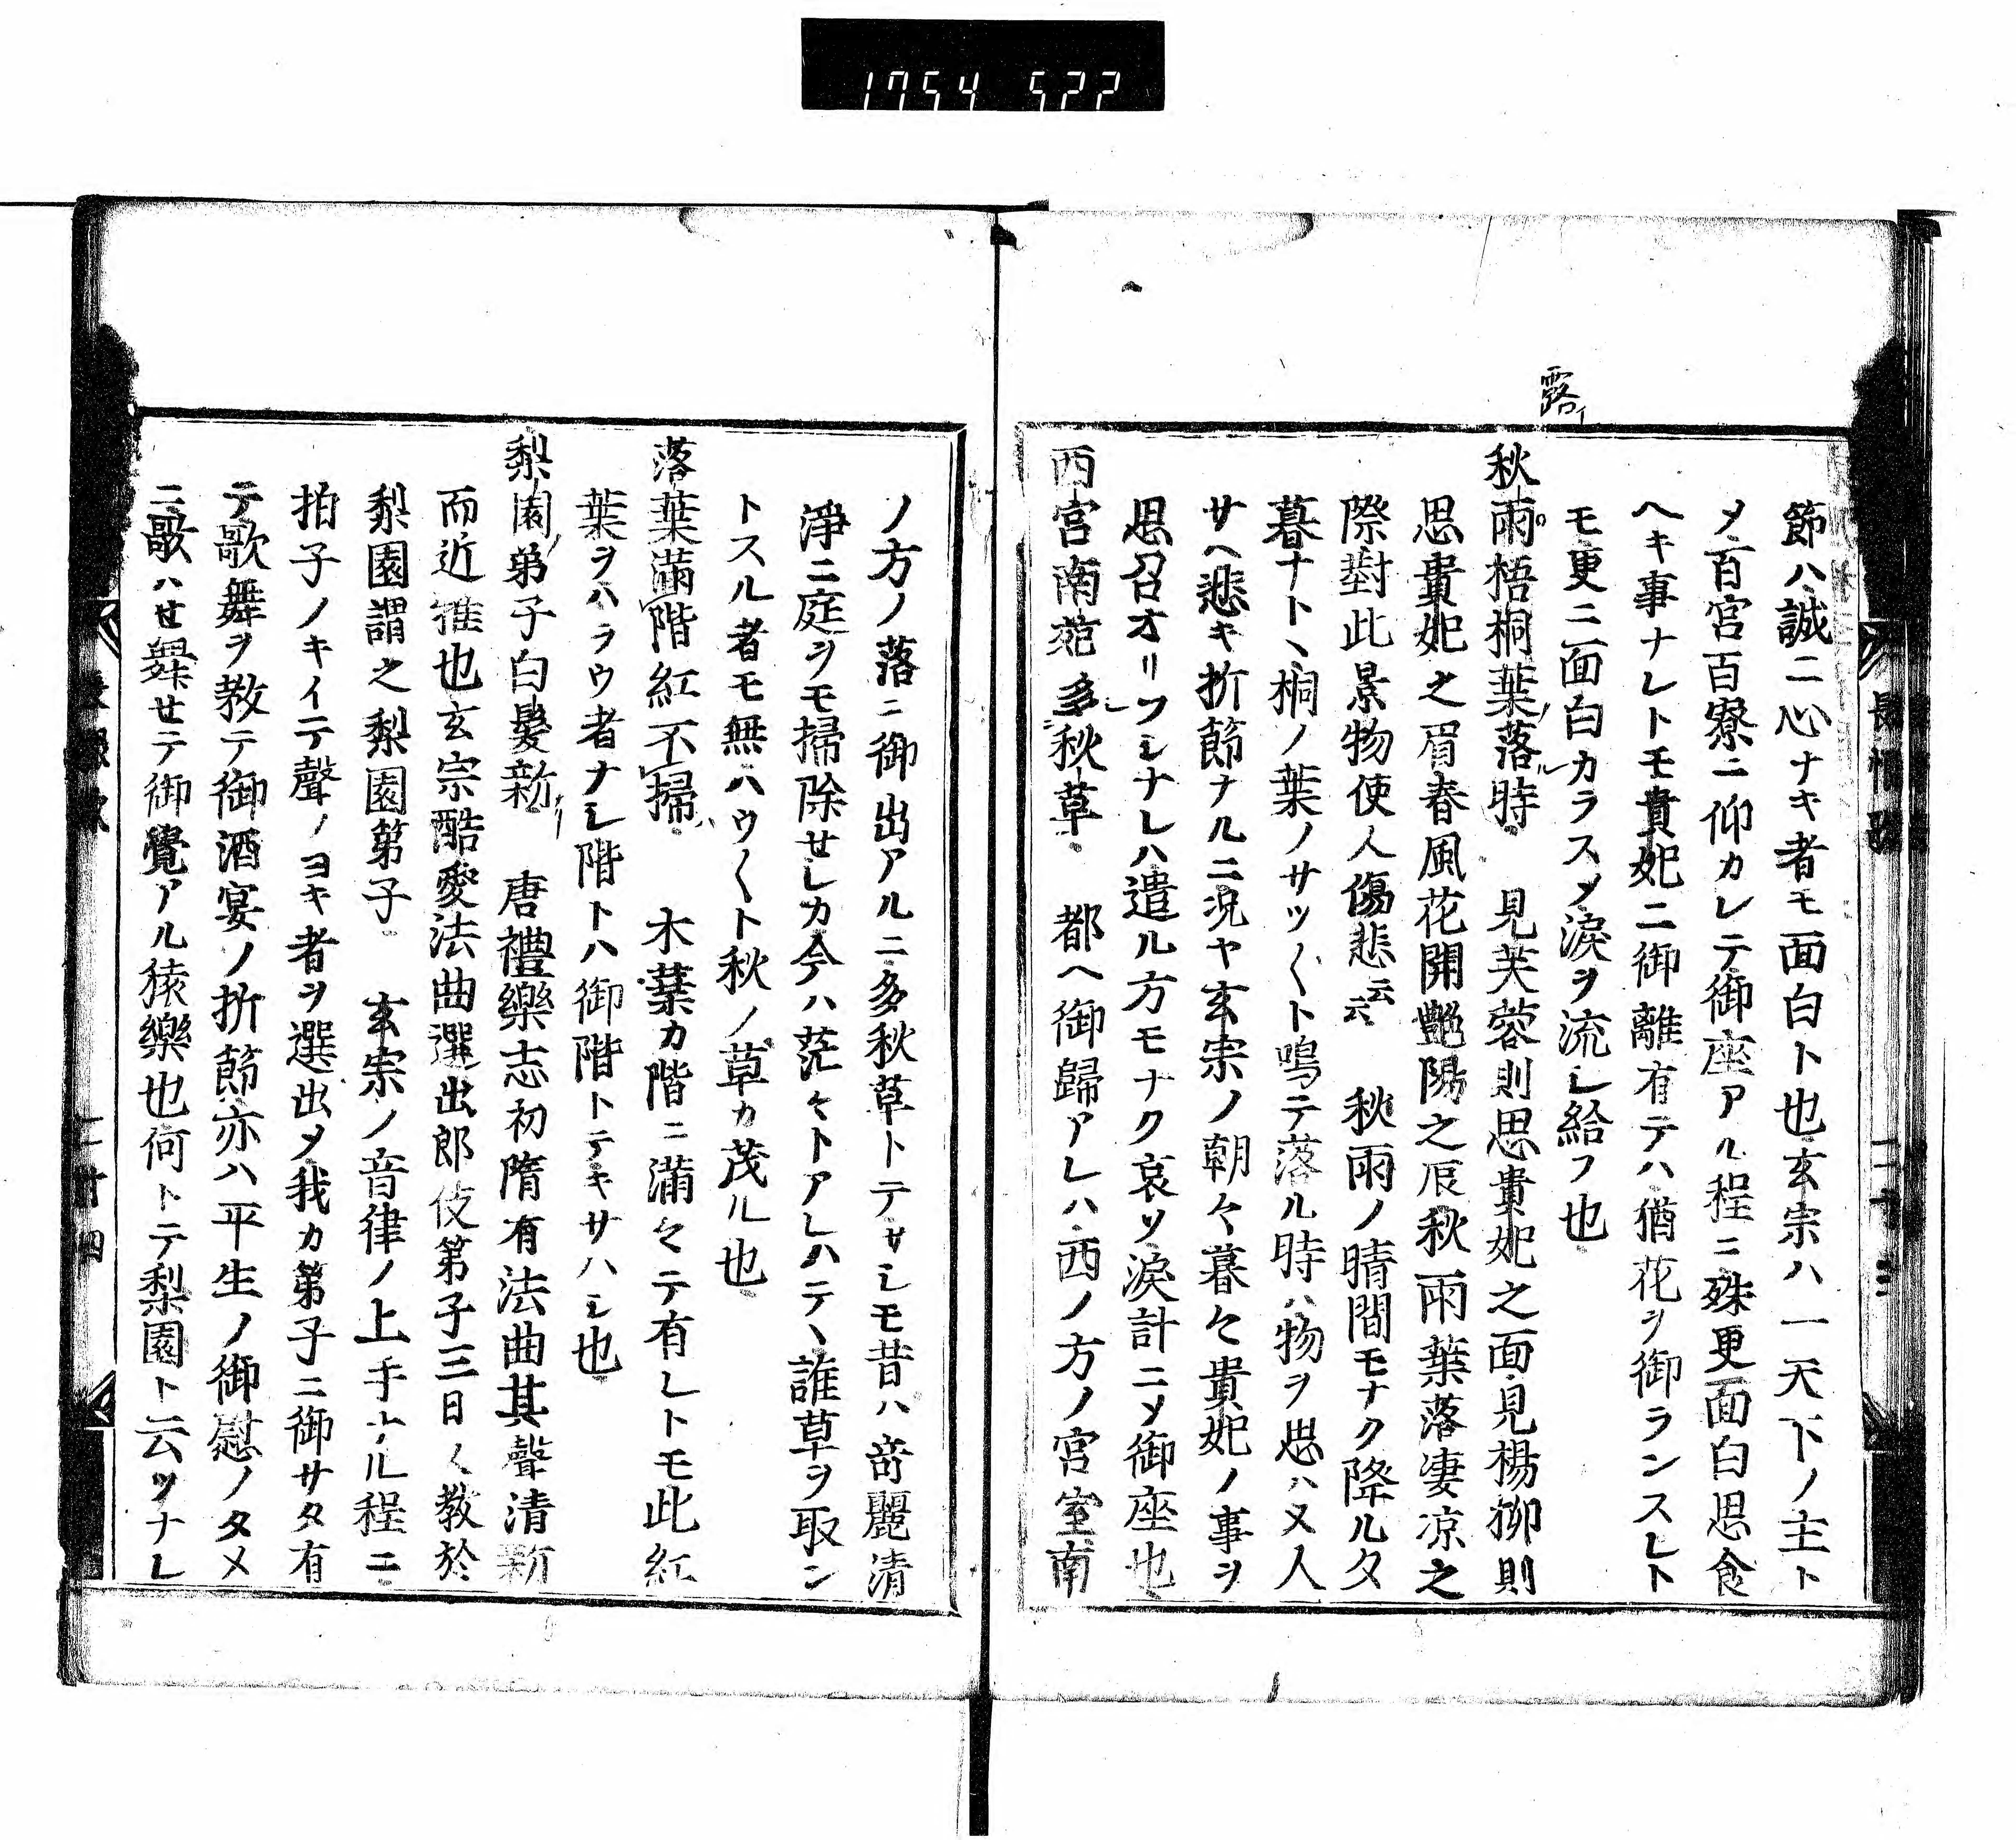 1754 522
露イ
節ハ誠ニ心ナキ者モ面白ト也玄宗ハ一天下ノ主ト
〆百官百寮ニ仰カレテ御座アル程ニ殊更面白思食
ヘキ事ナレトモ貴妃ニ御離有テハ猶花ヲ御ランスレト
モ更ニ面白カラス〆淚ヲ流シ給フ也
秋雨梧桐葉落時 見芙蓉則思貴妃之面見楊柳則
思貴妃之眉春風花開艷陽之辰秋雨葉落凄凉之
際對此景物使人傷悲云云 秋雨ノ晴間モナク降ル夕
暮ナトヽ桐ノ葉ノサツ〱ト鳴テ落ル時ハ物ヲ思ハヌ人
サヘ悲キ折節ナルニ况ヤ玄宗ノ朝々暮々貴妃ノ事ヲ
思召オリフシナレハ遣ル方モナク哀ソ淚計ニ〆御座也
西宮南苑多秋草 都ヘ御歸アレハ西ノ方ノ宮室南
ノ方ノ落ニ御出アルニ多秋草トテサシモ昔ハ奇麗清
淨ニ庭ヲモ掃除せシカ今ハ茫々トアレハテヽ誰草ヲ取ン
トスル者モ無ハウ〱ト秋ノ草カ茂ル也
落葉滿階紅不掃 木葉カ階ニ滿々テ有レトモ此紅
葉ヲハラウ者ナシ階トハ御階トテキサハシ也
梨園弟子白髮新 唐禮樂志初隋有法曲其聲清新
而近雅也玄宗酷愛法曲選出郎伎第子三日〱教於
梨園謂之梨園第子 玄宗ノ音律ノ上手ナル程ニ
拍子ノキイテ聲ノヨキ者ヲ選出〆我カ第子ニ御サタ有
テ歌舞ヲ教テ御酒宴ノ折節亦ハ平生ノ御慰ノタメ
ニ歌ハせ舞せテ御覺アル猿樂也何トテ梨園ト云ツナレ
長恨歌
二十三
二廿四